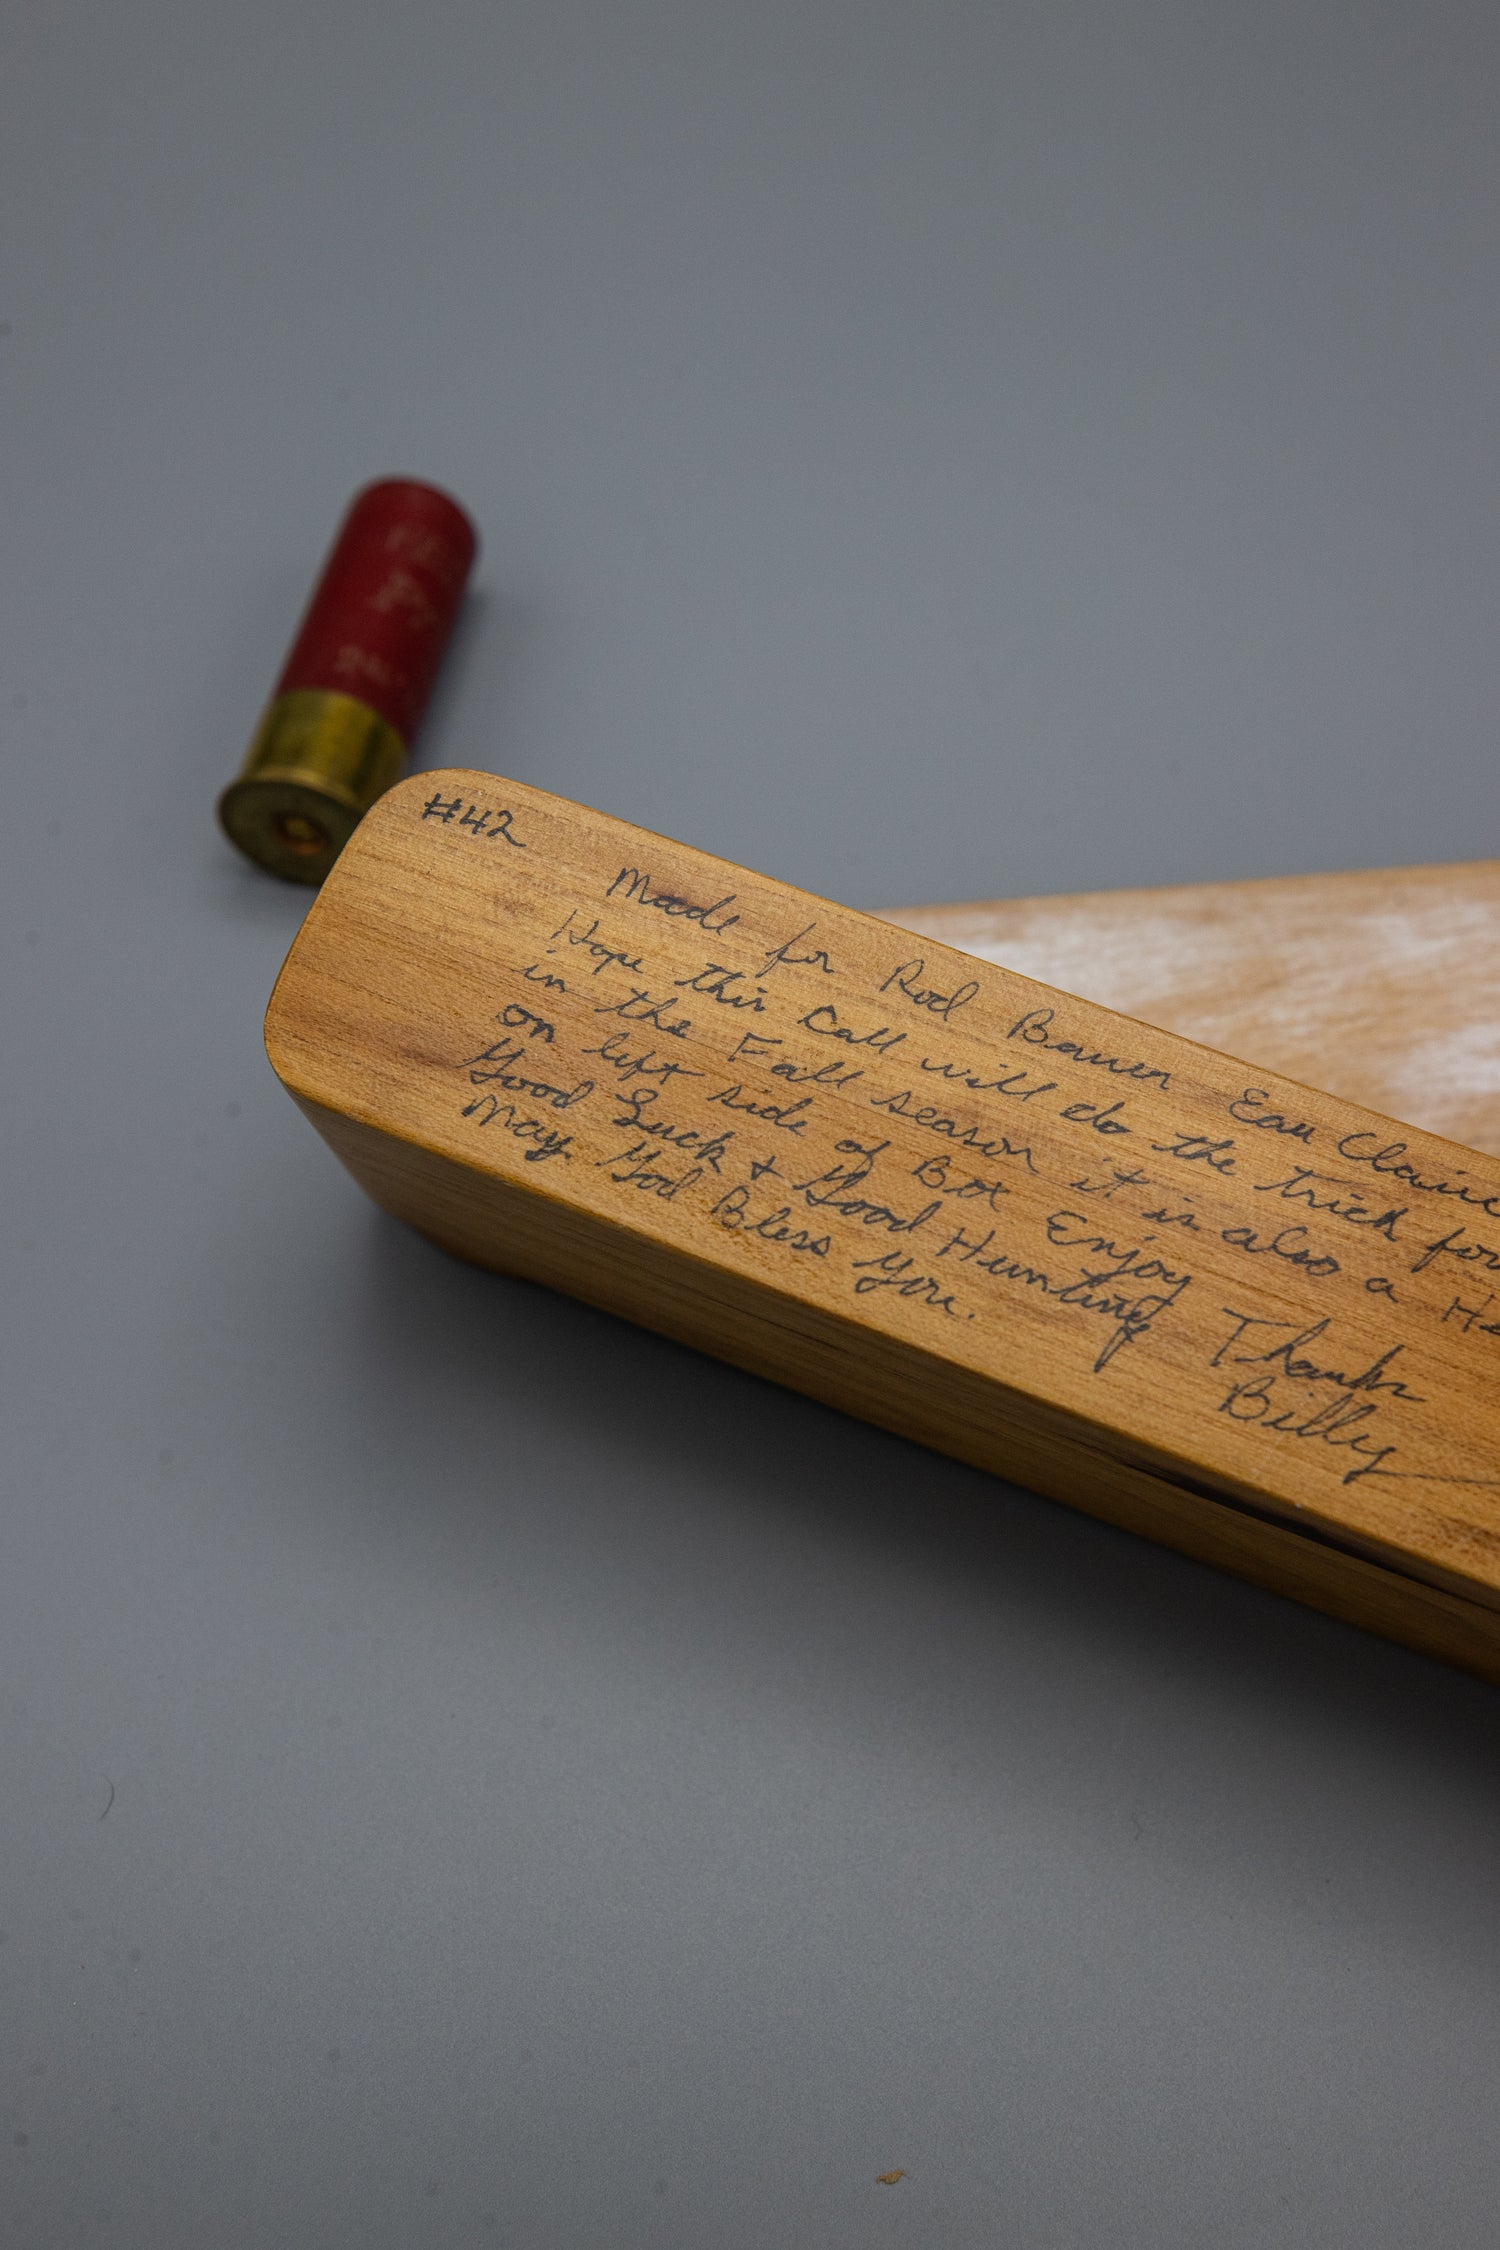 #42
Made for Rod Bauer Eau Claire
Hope this Call will do the trick for
in the Fall season it is also a He
on left side of Box Enjoy
Good Luck & Good Hunting Thanks
May God Bless You. Billy